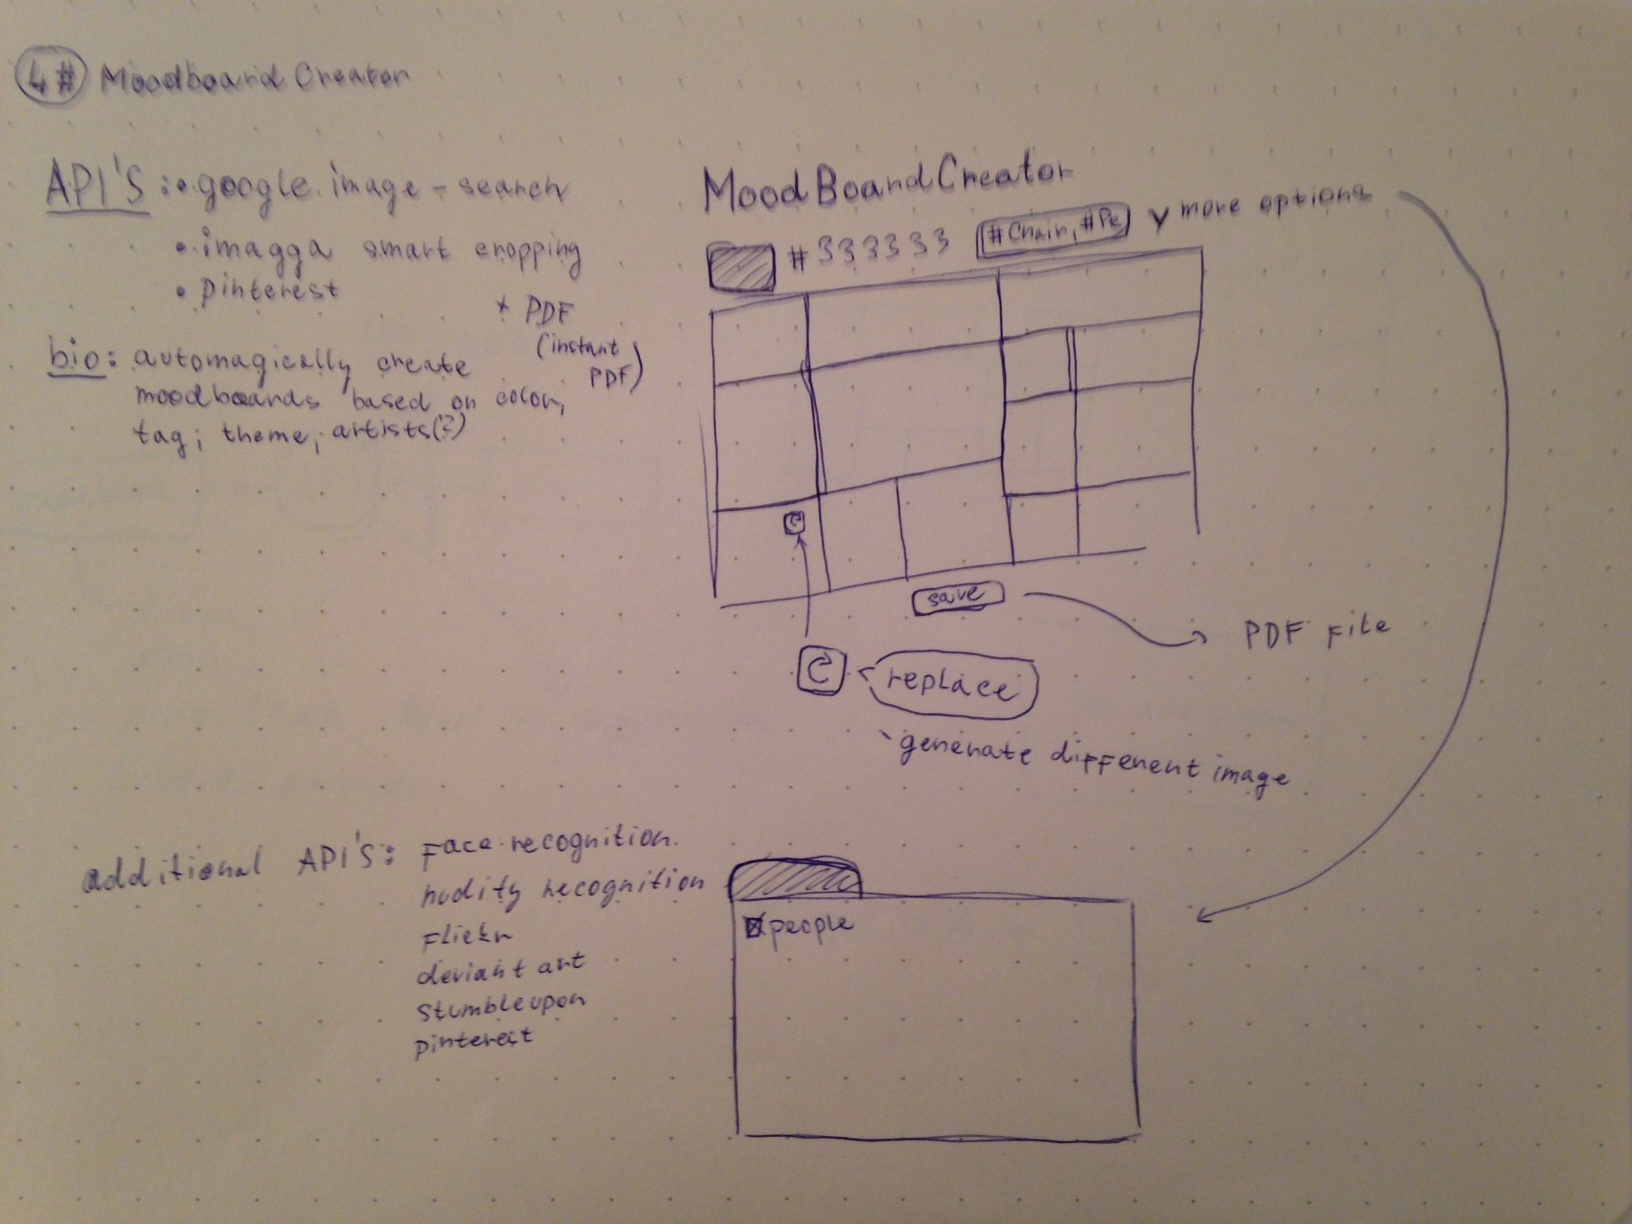 4# Moodboard Creator
API'S: • google image-search
• imagga smart cropping
• pinterest
* PDF
(instant
PDF)
bio: automagically create
moodboards based on color,
tag; theme; artists(?)
MoodBoardCreator
#333333 #Chair, #Pe more options
C
save
PDF file
C replace
generate different image
additional API'S: Face recognition.
nudity recognition
Flickr
deviant art
stumbleupon
pinterest
people